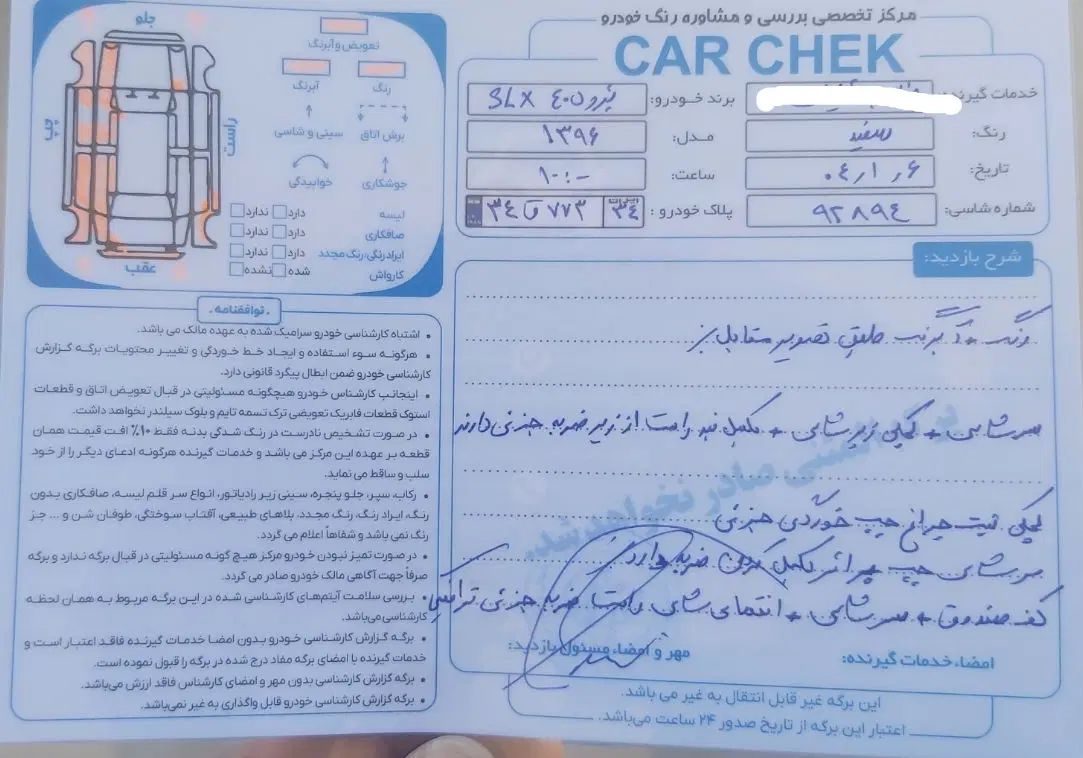 مرکز تخصصی بررسی و مشاوره رنگ خودرو
CAR CHEK
خدمات گیرنده:
برند خودرو: پژو ۴۰۵ SLX
رنگ: سفید
مدل: ۱۳۹۶
تاریخ: ۰۴/۱/۶
ساعت: ۱۰:-
شماره شاسی: ۹۲۸۹۴
پلاک خودرو: ۳۴ ق ۷۷۳ ایران ۳۴
شرح بازدید:
رنگ + آبرنگ طبق تصویر مقابل
سرشاسی + لچکی زیر شاسی + مکمل راست از زیر ضربه جزئی دارند
لچکی چراغ چپ خوردگی جزئی
سرشاسی چپ بر اثر مکمل ضربه دارد
کف صندوق + سرشاسی + انتهای شاسی راست ضربه جزئی ترافیکی
برگه المثنی صادر نخواهد شد.
امضاء خدمات گیرنده:
مهر و امضاء مسئول بازدید:
این برگه غیر قابل انتقال به غیر می باشد.
اعتبار این برگه از تاریخ صدور ۲۴ ساعت می‌باشد.
جلو
چپ
راست
عقب
تعویض و آبرنگ
رنگ
آبرنگ
برش اتاق
سینی و شاسی
جوشکاری
خوابیدگی
لیسه دارد ندارد
صافکاری دارد ندارد
ایراد رنگی، رنگ مجدد دارد ندارد
کارواش شده نشده
. توافقنامه .
• اشتباه کارشناسی خودرو سرامیک شده به عهده مالک می باشد.
• هرگونه سوء استفاده و ایجاد خط خوردگی و تغییر محتویات برگه گزارش
کارشناسی خودرو ضمن ابطال پیگرد قانونی دارد.
• اینجانب کارشناس خودرو هیچگونه مسئولیتی در قبال تعویض اتاق و قطعات
استوک قطعات فابریک تعویضی ترک تسمه تایم و بلوک سیلندر نخواهد داشت.
• در صورت تشخیص نادرست در رنگ شدگی بدنه فقط ۱۰٪ افت قیمت همان
قطعه بر عهده این مرکز می باشد و خدمات گیرنده هرگونه ادعای دیگر را از خود
سلب و ساقط می نماید.
• رکاب، سپر، جلو پنجره، سینی زیر رادیاتور، انواع سر قلم لیسه، صافکاری بدون
رنگ، ایراد رنگ، رنگ مجدد، بلاهای طبیعی، آفتاب سوختگی، طوفان شن و ... جز
رنگ نمی باشد و شفاهاً اعلام می گردد.
• در صورت تمیز نبودن خودرو مرکز هیچ گونه مسئولیتی در قبال برگه ندارد و برگه
صرفاً جهت آگاهی مالک خودرو صادر می گردد.
• بررسی سلامت آیتم‌های کارشناسی شده در این برگه مربوط به همان لحظه
کارشناسی می‌باشد.
• برگه گزارش کارشناسی خودرو بدون امضا خدمات گیرنده فاقد اعتبار است و
خدمات گیرنده با امضای برگه مفاد درج شده در برگه را قبول نموده است.
• برگه گزارش کارشناسی بدون مهر و امضای کارشناس فاقد ارزش می‌باشد.
• برگه گزارش کارشناسی خودرو قابل واگذاری به غیر نمی‌باشد.